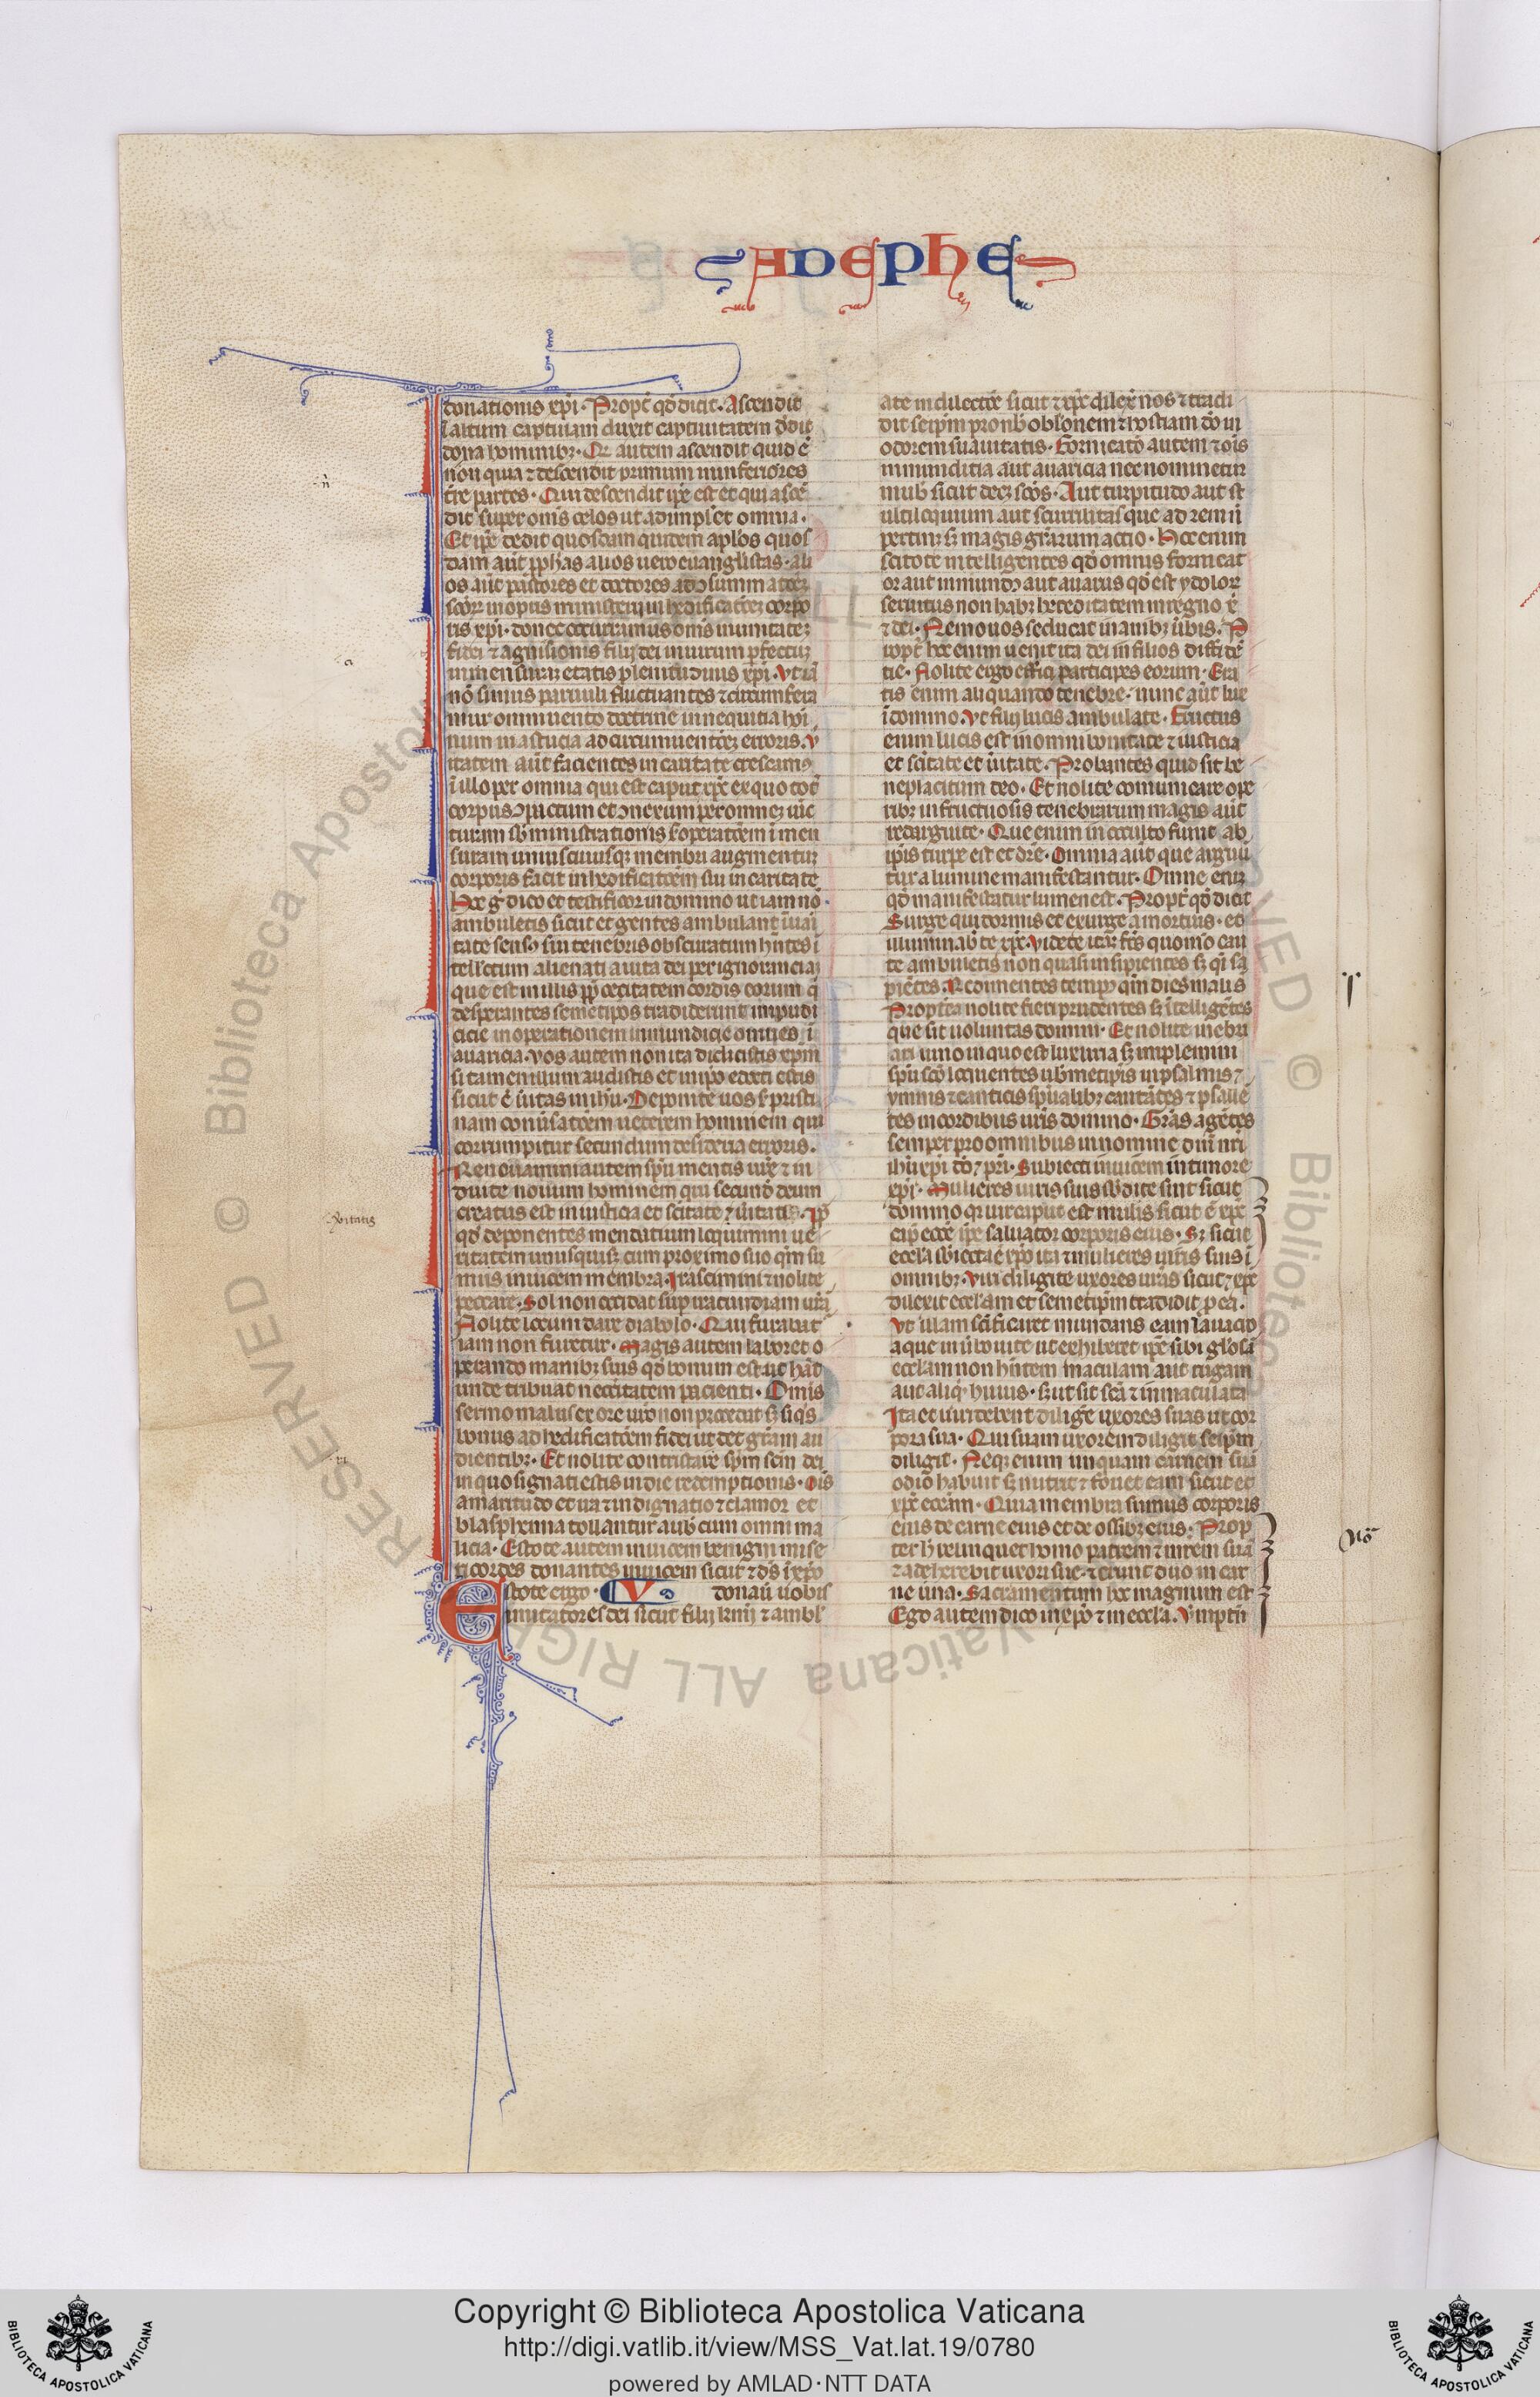 AD EPHE
donationis xp̄i. Propt̄ qd̄ dicit. Ascendit
ī altum captiuam duxit captiuitatem dedit
dona hominibꝫ. Qr̄ autem ascendit quid ē
non quia ⁊ descendit primum in inferiores
t̄re partes. Qui descendit ip̄e est et qui ascē
dit super om̄s celos ut adimpl'et omnia.
Et ip̄e dedit quosdam quidem apl̄os quos
dam aut̄ ꝓphās alios uero euangl̄istas. ali
os aut̄ pastores et doctores ad ꝯsummatōeꝫ
scōꝝ in opus ministerij in hedificatōeꝫ corpo
ris xp̄i. donec occurramus om̄s in unitateꝫ
fidei ⁊ agnisionis filij dei in uirum ꝑfectuꝫ
in mensuraꝫ etatis plenitudinis xp̄i. Vt iā
nō simus paruuli fluctuantes ⁊ circumfera
mur omni uento doctrine in nequitia homi
num in astucia ad circumuentōeꝫ erroris. V
itatem aut̄ facientes in caritate crescamꝰ
ī illo per omnia qui est caput xp̄c ex quo tot̄
corpus ꝯpactum et ꝯnexum per omneꝫ iūc
turam sb̄ministrationis s̄ operatōem ī men
suram uniuscuiusqꝫ membri augmentuꝫ
corporis facit in hedificatōem sui in caritate
Hoc g̊ dico et testificor in domino ut iam nō
ambuletis sicut et gentes ambulant ī uani
tate sensꝰ sui tenebris obscuratum hn̄tes ī
tell'ectum alienati a uita dei per ignoranciaꝫ
que est in illis ꝓpt̄ cecitatem cordis eorum q̄
desperantes semetip̄os tradiderunt impudi
citie in operationem inmundicie omnes ī
auaricia. Vos autem non ita didicistis xp̄m
si tamen illum audistis et in ip̄o edocti estis
sicut ē ūitas in ihū. Deponite uos s̄ pristi
nam conūsatōem ueterem hominem qui
corrumpitur secundum desideria erroris.
Renouamini autem sp̄u mentis ūre ⁊ in
duite nouum hominem qui secund̄ deum
creatus est in iusticia et sc̄itate ⁊ ūitatis. Pp̄
qd̄ deponentes mendatium loquimini ue
ritatem unusquisqꝫ cum proximo suo qm̄ su
mus inuicem membra. Irascimini ⁊ nolite
peccare. Sol non occidat suꝑ iracundiam ur̄ā
Nolite locum dare diabolo. Qui furabat̄
iam non furetur. Magis autem laboret o
perando manibꝫ suis qd̄ bonum est. ut hāt
unde tribuat neccitatem pacienti. Omnis
sermo malus ex ore ūro non procedat sꝫ siq̄s
bonus ad hedificatōem fidei ut det gr̄am au
dientibꝫ. Et nolite contristare sp̄m sc̄m dei
in quo signati estis in die redemptionis. Ois
amaritudo et ira ⁊ indignatio ⁊ clamor et
blasphemia tollantur a uob̄ cum omni ma
licia. Estote autem inuicem benigni mise
ricordes donantes inuicem sicut ⁊ ds̄ ī xp̄o
Estote ergo. V donau̇ uobis
imitatores dei sicut filij kmi ⁊ ambl̄
ate in dilectōe sicut ⁊ xp̄c dilex̄ nos ⁊ tradi
dit seip̄m pro nob̄ obl'onem ⁊ hostiam dō in
odorem suauitatis. Fornicatō autem ⁊ ōis
inmunditia aut auaricia nec nominetur
in uob̄ sicut decꝫ sc̄os. Aut turpitudo aut st
ultiloquium aut scurrilitas que ad rem ñ
pertinꝫ sꝫ magis gr̄arum actio. Hoc enim
scitote intelligentes qd̄ omnis fornicat
or aut inmundꝰ aut auarus qd̄ est ydoloꝝ
seruitus non habꝫ hereditatem in regno xp̄i
⁊ dei. Nemo uos seducat inanibꝫ ūbis. P
ropt̄ hoc enim uenit ira dei in filios diffidē
tie. Nolite ergo effici participes eorum. Era
tis enim aliquando tenebre. nunc aut̄ lux
ī domino. Vt filij lucis ambulate. Fructus
enim lucis est in omni bonitate ⁊ iusticia
et sc̄itate et ūitate. Probantes quid sit be
neplacitum deo. Et nolite comunicare ope
ribꝫ infructuosis tenebrarum magis aut̄
redarguite. Que enim in occulto fiunt ab
ip̄is turpe est et dr̄e. Omnia aut̄ que arguū
tur a lumine manifestantur. Omne enīꝫ
qd̄ manifestatur lumen est. Propt̄ qd̄ dicit
Surge qui dormis et exurge a mortuis. et
illuminab̄ te xp̄c. Videte itaꝫ fr̄s quomō cau
te ambuletis non quasi insipientes sꝫ q̄i sa
piētes. Redimentes tempꝰ qm̄ dies mali s̄
Propt̄ea nolite fieri prudentes sꝫ ītelligētes
que sit uoluntas domini. Et nolite inebri
ari uino in quo est luxuria sꝫ implemini
sp̄u sc̄o loquentes uob̄metip̄is in psalmis ⁊
ymnis ⁊ canticis sp̄ualibꝫ cantātes ⁊ psallē
tes in cordibus ur̄is domino. Gr̄as agētes
semper pro omnibus in nomine dn̄i nr̄i
ih̄u xp̄i dō ⁊ pr̄i. Subiecti inuicem in timore
xp̄i. Mulieres uiris suis sb̄dite sint sicut
domino qr̄ uir caput est mulis̄ sicut ē xp̄c
cap̄ ecc̄e ip̄e saluator corporis eius. Sꝫ sicut
eccl̄a sb̄iecta ē xp̄o ita ⁊ mulieres uiris suis ī
omnibꝫ. Viri diligite uxores ur̄as sicut ⁊ xp̄c
dilexit eccl̄am et semetip̄m tradidit ꝓ ea.
Vt illam sc̄ificaret mundans eam lauacro
aque in ūbo uite ut exhiberet ip̄e sibi gl'osā
eccl̄am non hn̄tem maculam aut rugam
aut aliq̄ huius. sꝫ ut sit sc̄a ⁊ inmaculata
Ita et uiri debent diligē uxores suas ut cor
pora sua. Qui suam uxorem diligit seip̄m
diligit. Neqꝫ enim unquam carnem suā
odiō habuit sꝫ nutrit ⁊ fouet eam sicut et
xp̄c ecc̄am. Quia membra sumus corporis
eius de carne eius et de ossibꝫ eius. Prop
ter h̄ relinquet homo patrem ⁊ mr̄em suā
⁊ adherebit uxori sue. ⁊ erunt duo in car
ne una. Sacramentum hoc magnum est
Ego autem dico in xp̄o ⁊ in eccl̄a. Vmptn̄
uitatis
Nō
© Biblioteca Apostolica Vaticana ALL RIGHTS RESERVED
Copyright © Biblioteca Apostolica Vaticana
http://digi.vatlib.it/view/MSS_Vat.lat.19/0780
powered by AMLAD·NTT DATA
BIBLIOTECA APOSTOLICA VATICANA
BIBLIOTECA APOSTOLICA VATICANA